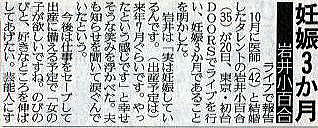 妊娠3か月
岩井小百合
ライブで報告
10月に医師(42)と結婚
したタレントの岩井小百合
(35)が20日、東京・初台
DOORSでライブを行
い、妊娠3か月であること
を明かした。
岩井は「実は妊娠してい
るんです。(出産予定は)
来年7月くらいです。やっ
とという感じです」と幸せ
そうな笑みを浮かべた。夫
も知らせを聞いて涙ぐんで
いたという。
今後は仕事をセーブして
出産に備える予定で「女の
子が欲しいですね。のびの
びと、好きなところを伸ば
してあげたい。芸能人にす